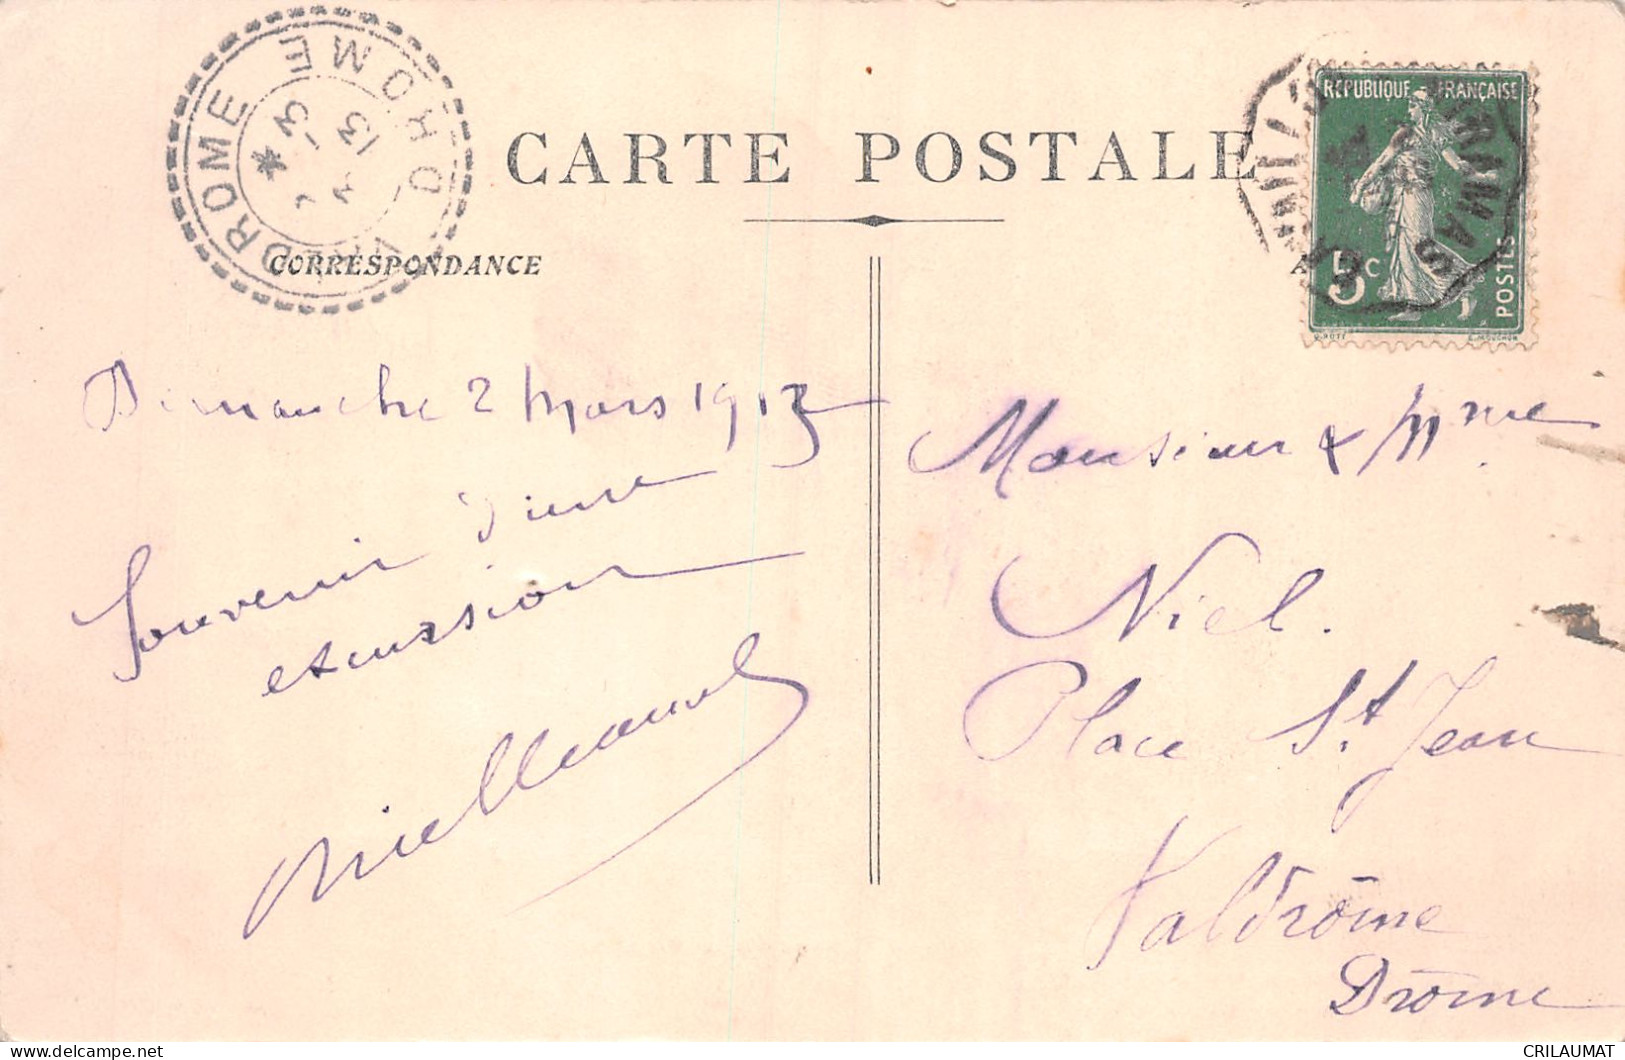 CARTE POSTALE
CORRESPONDANCE
DROME
DROME
13
-3
REPUBLIQUE FRANÇAISE
5c
POSTES
Dimanche 2 Mars 1913
Souvenir d'une
excursion
Monsieur & Mme
Niel.
Place St. Jean
Valdrôme
Drôme
delcampe.net
CRILAUMAT